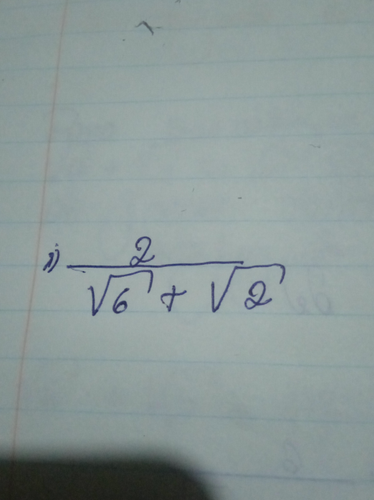 i) 2
√6 + √2